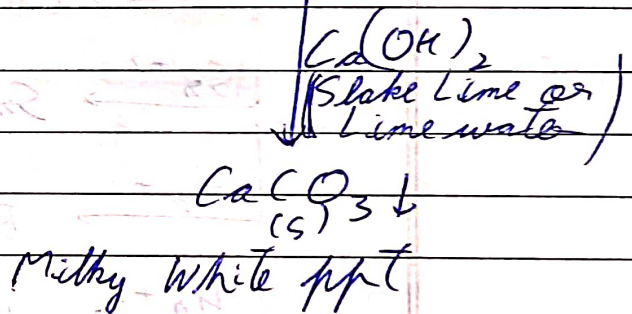 Ca(OH)2
(Slake Lime or
Lime water)
CaCO3↓
(s)
Milky White ppt